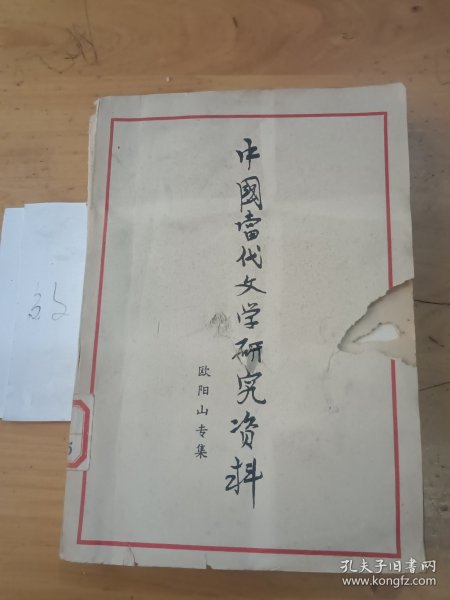 中國當代文学研究资料
欧阳山专集
孔夫子旧书网
www.kongfz.com